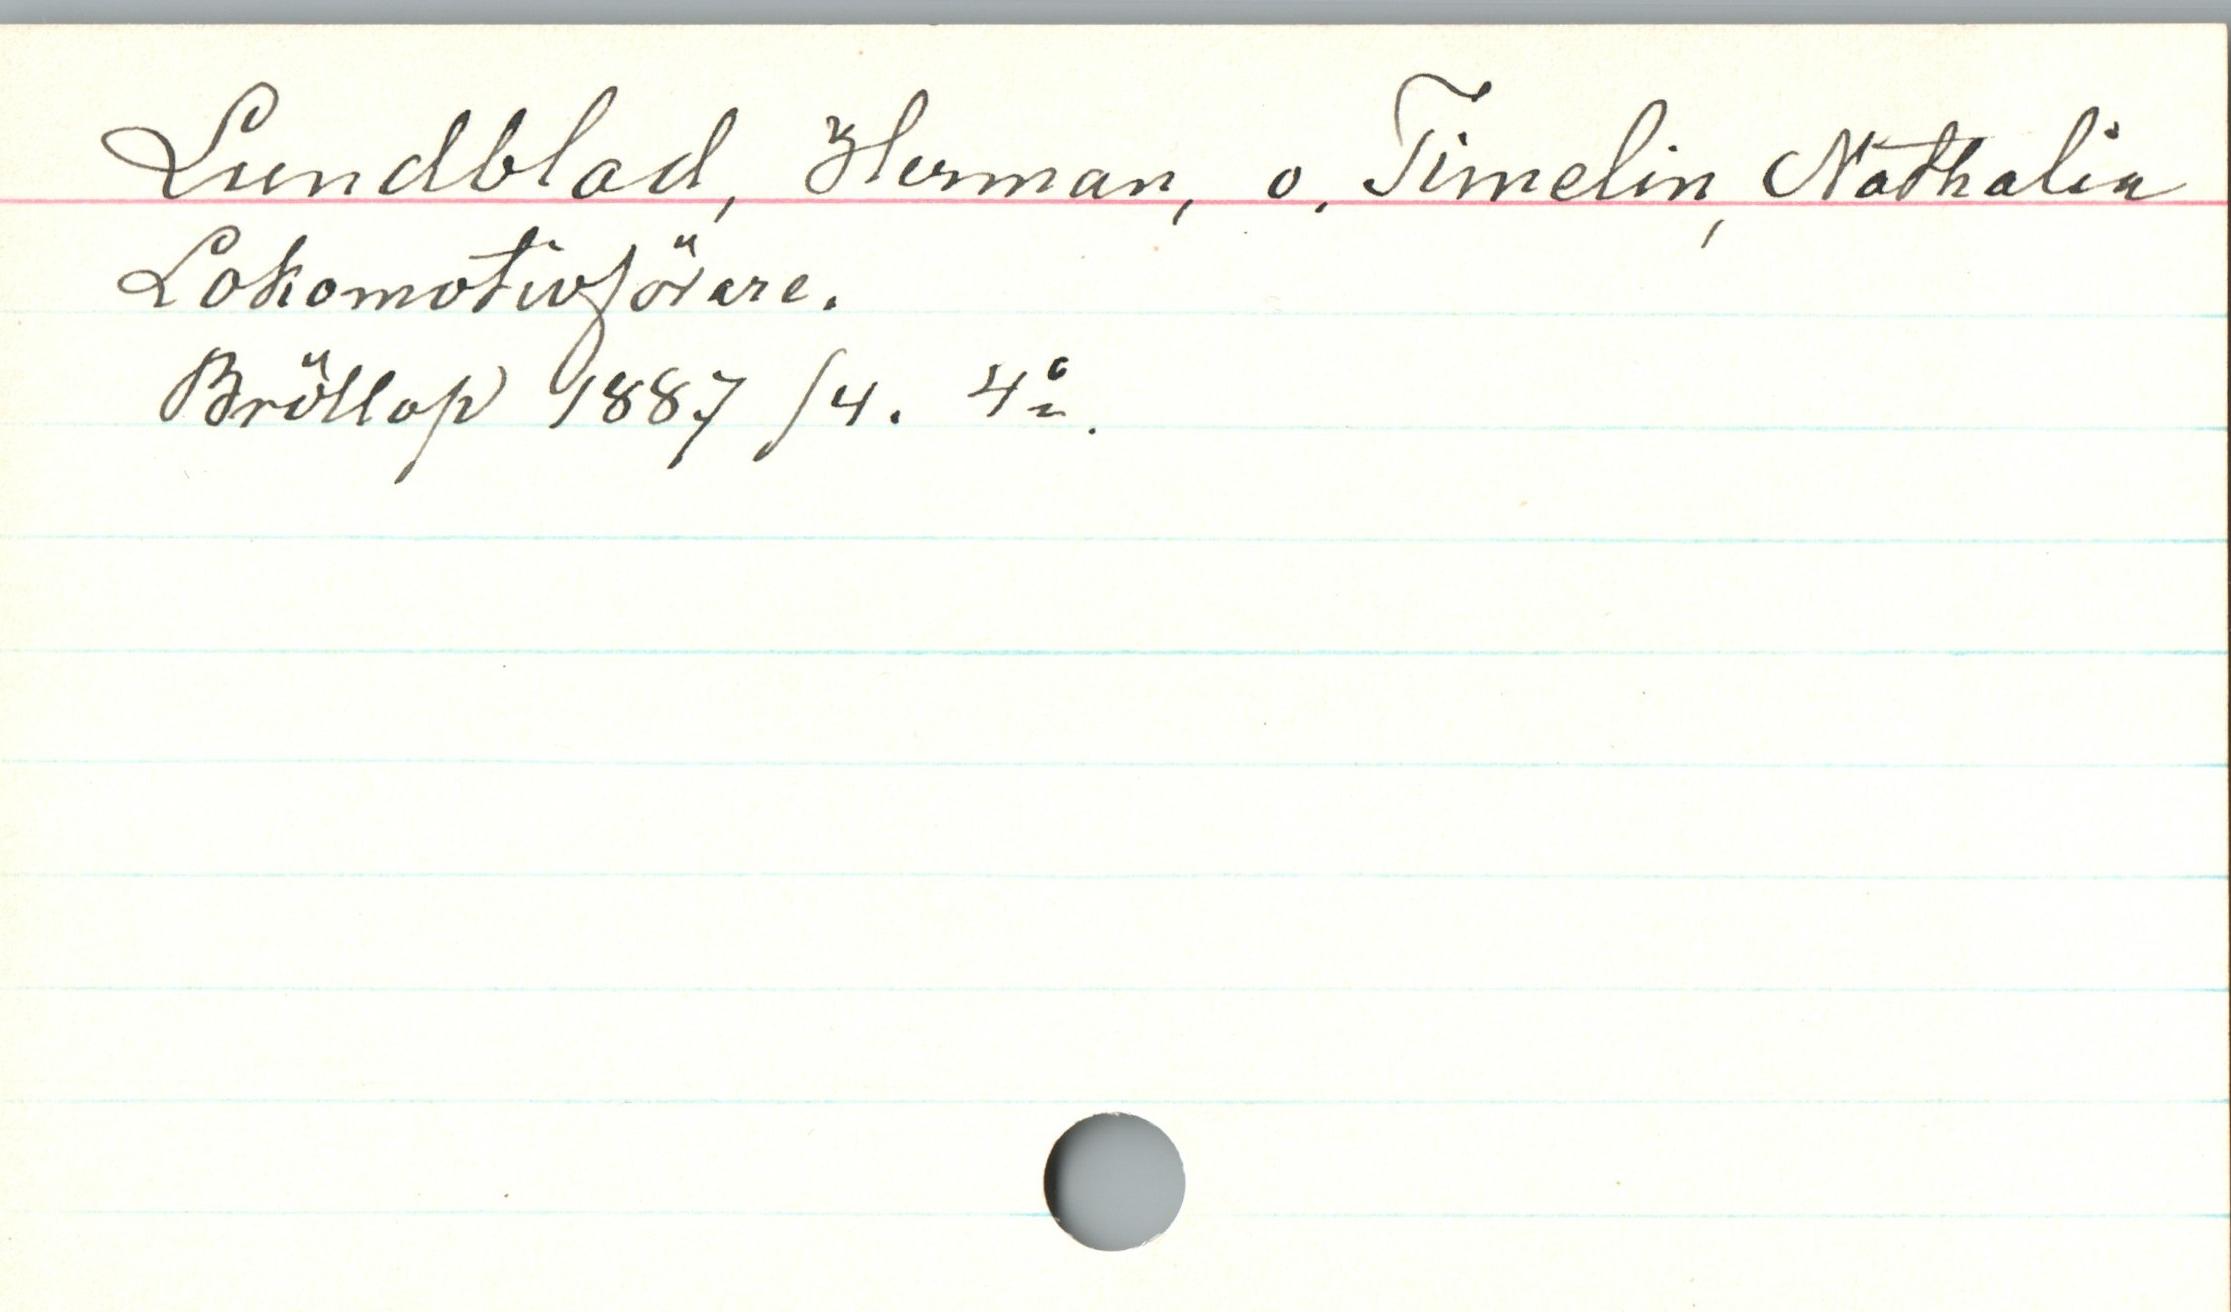 Lundblad, Herman, o, Timelin, Nathalia
Lokomotivförare.
Bröllop 1887 /4. 4:o.